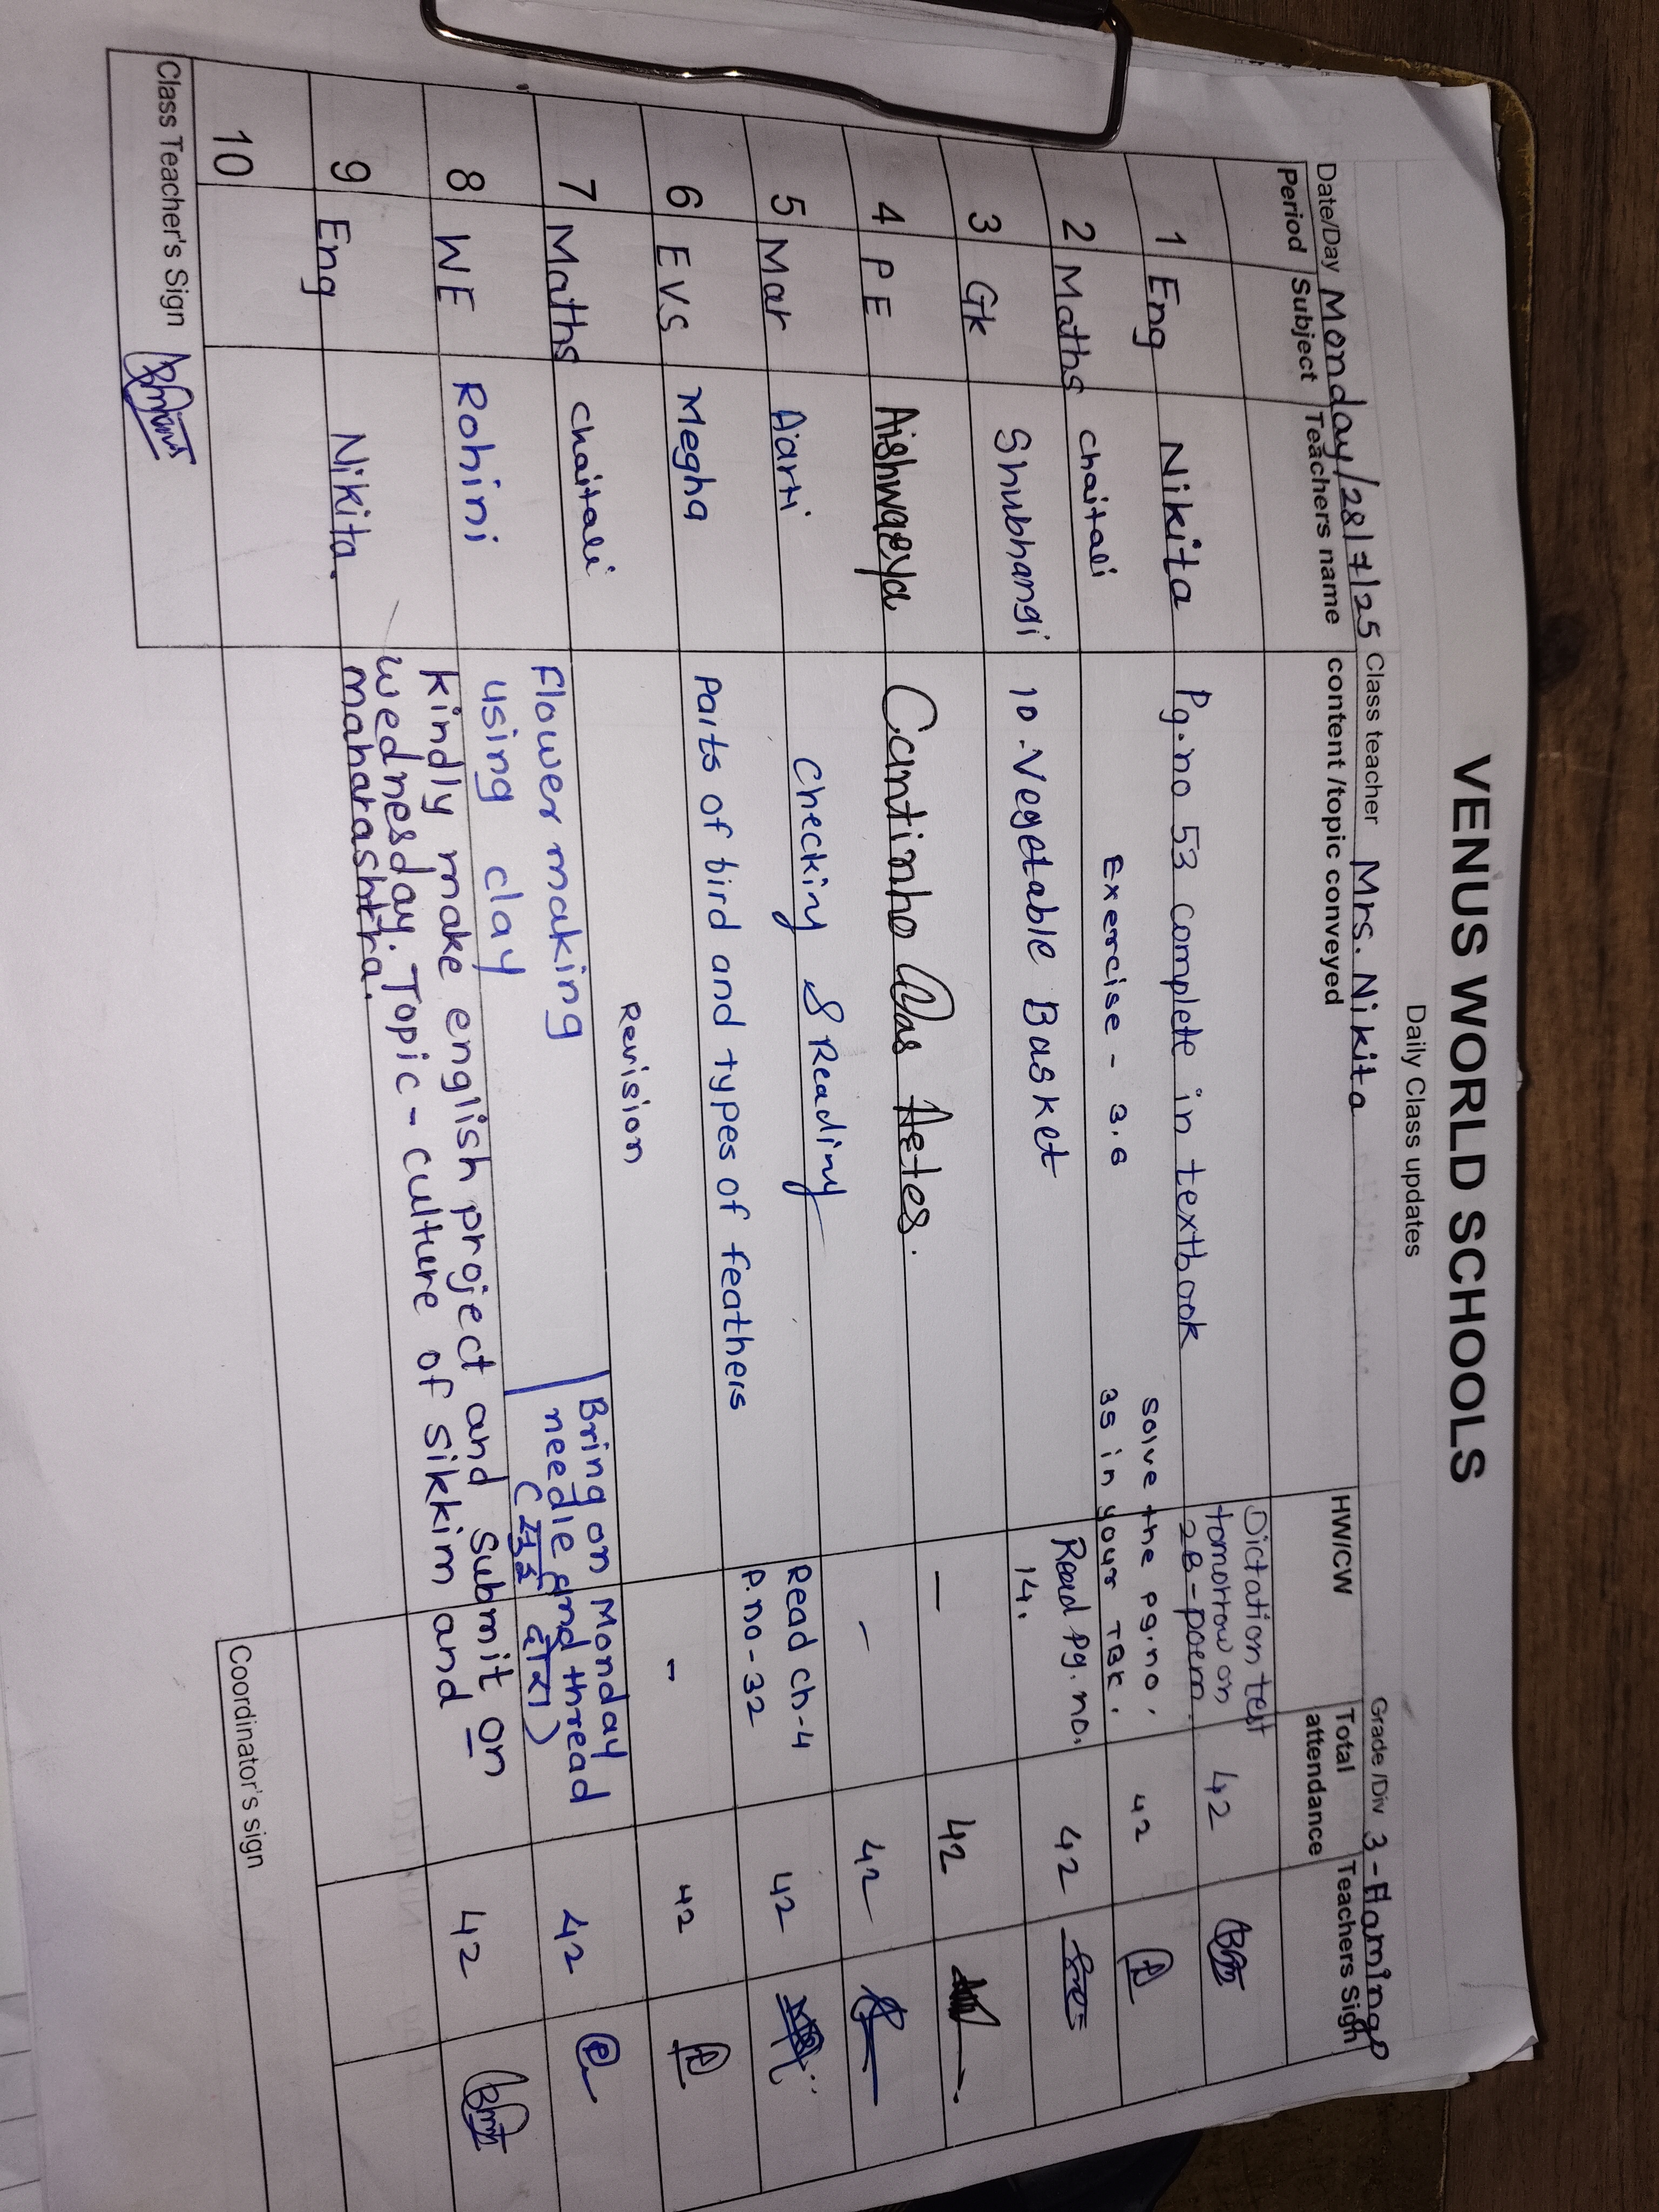 VENUS WORLD SCHOOLS
Daily Class updates
Date/Day Monday/28/7/25 Class teacher Mrs. Nikita Grade /Div 3 - Flamingo
Period Subject Teachers name content /topic conveyed HW/CW Total attendance Teachers Sign
1 Eng Nikita Pg.no 53 complete in textbook Dictation test tomorrow on 2B-poem. 42
2 Maths chaitali Exercise - 3.6 solve the pg.no. 35 in your TBK. 42
3 Gk Shubhangi 10 - Vegetable Basket Read pg. no. 14. 42
4 PE — 42
5 Mar Aarti Checking & Reading – 42
6 EVS Megha Parts of bird and types of feathers Read ch-4 P.no-32 42
7 Maths chaitali Revision - 42
8 WE Rohini Flower making using clay Bring on Monday needle and thread (सुई दोरा) 42
9 Eng Nikita. kindly make english project and submit on wednesday. Topic - culture of sikkim and maharashtra. 42
10
Class Teacher's Sign
Coordinator's sign